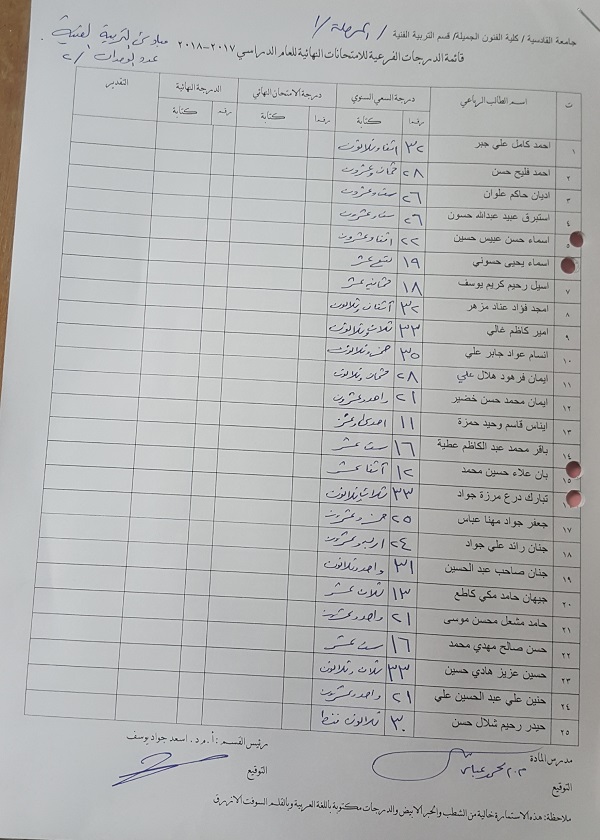 جامعة القادسية / كلية الفنون الجميلة / قسم التربية الفنية / المرحلة / ١
قائمة الدرجات الفرعية للامتحانات النهائية للعام الدراسي ٢٠١٧-٢٠١٨ مبادئ التربية الفنية
عدد الوحدات / ٢
ت اسم الطالب الرباعي درجة السعي السنوي درجة الامتحان النهائي الدرجة النهائية التقدير
رقما كتابة رقما كتابة رقما كتابة
١ احمد كامل علي جبر ٣٢ اثنا وثلاثون
٢ احمد فليح حسن ٢٨ ثمان وعشرون
٣ اديان حاكم علوان ٢٦ ست وعشرون
٤ استبرق عبيد عبدالله حسون ٢٦ ست وعشرون
٥ اسماء حسن عبيس حسين ٢٢ اثنا وعشرون
اسماء يحيى حسوني ١٩ تسع عشر
٧ اسيل رحيم كريم يوسف ١٨ ثمانية عشر
٨ امجد فؤاد عناد مزهر ٣٢ أثنان وثلاثون
٩ امير كاظم غالي ٣٣ ثلاث وثلاثون
١٠ انسام عواد جابر علي ٣٥ خمس وثلاثون
١١ ايمان فرهود هلال علي ٢٨ ثمان وعشرون
١٢ ايمان محمد حسن خضير ٢١ واحد وعشرون
١٣ ايناس قاسم وحيد حمزة ١١ احدى عشر
١٤ باقر محمد عبد الكاظم عطية ١٦ ست عشر
١٥ بان علاء حسين محمد ١٢ أثنا عشر
تبارك درع مرزة جواد ٣٣ ثلاث وثلاثون
١٧ جعفر جواد مهنا عباس ٢٥ خمس وعشرون
١٨ جنان رائد علي جواد ٢٤ اربع وعشرون
١٩ جنان صاحب عبد الحسين ٣١ واحد وثلاثون
٢٠ جيهان حامد مكي كاطع ١٣ ثلاث عشر
٢١ حامد مشعل محسن موسى ٢١ واحد وعشرون
٢٢ حسن صالح مهدي محمد ١٦ ست عشر
٢٣ حسين عزيز هادي حسين ٣٣ ثلاث وثلاثون
٢٤ حنين علي عبد الحسين علي ٢١ واحد وعشرون
٢٥ حيدر رحيم شلال حسن ٣٠ ثلاثون فقط
مدرس المادة رئيس القسم : أ.م.د. اسعد جواد يوسف
التوقيع التوقيع
ملاحظة: هذه الاستمارة خالية من الشطب والحبر الابيض والدرجات مكتوبة باللغة العربية وبالقلم السوفت الازرق